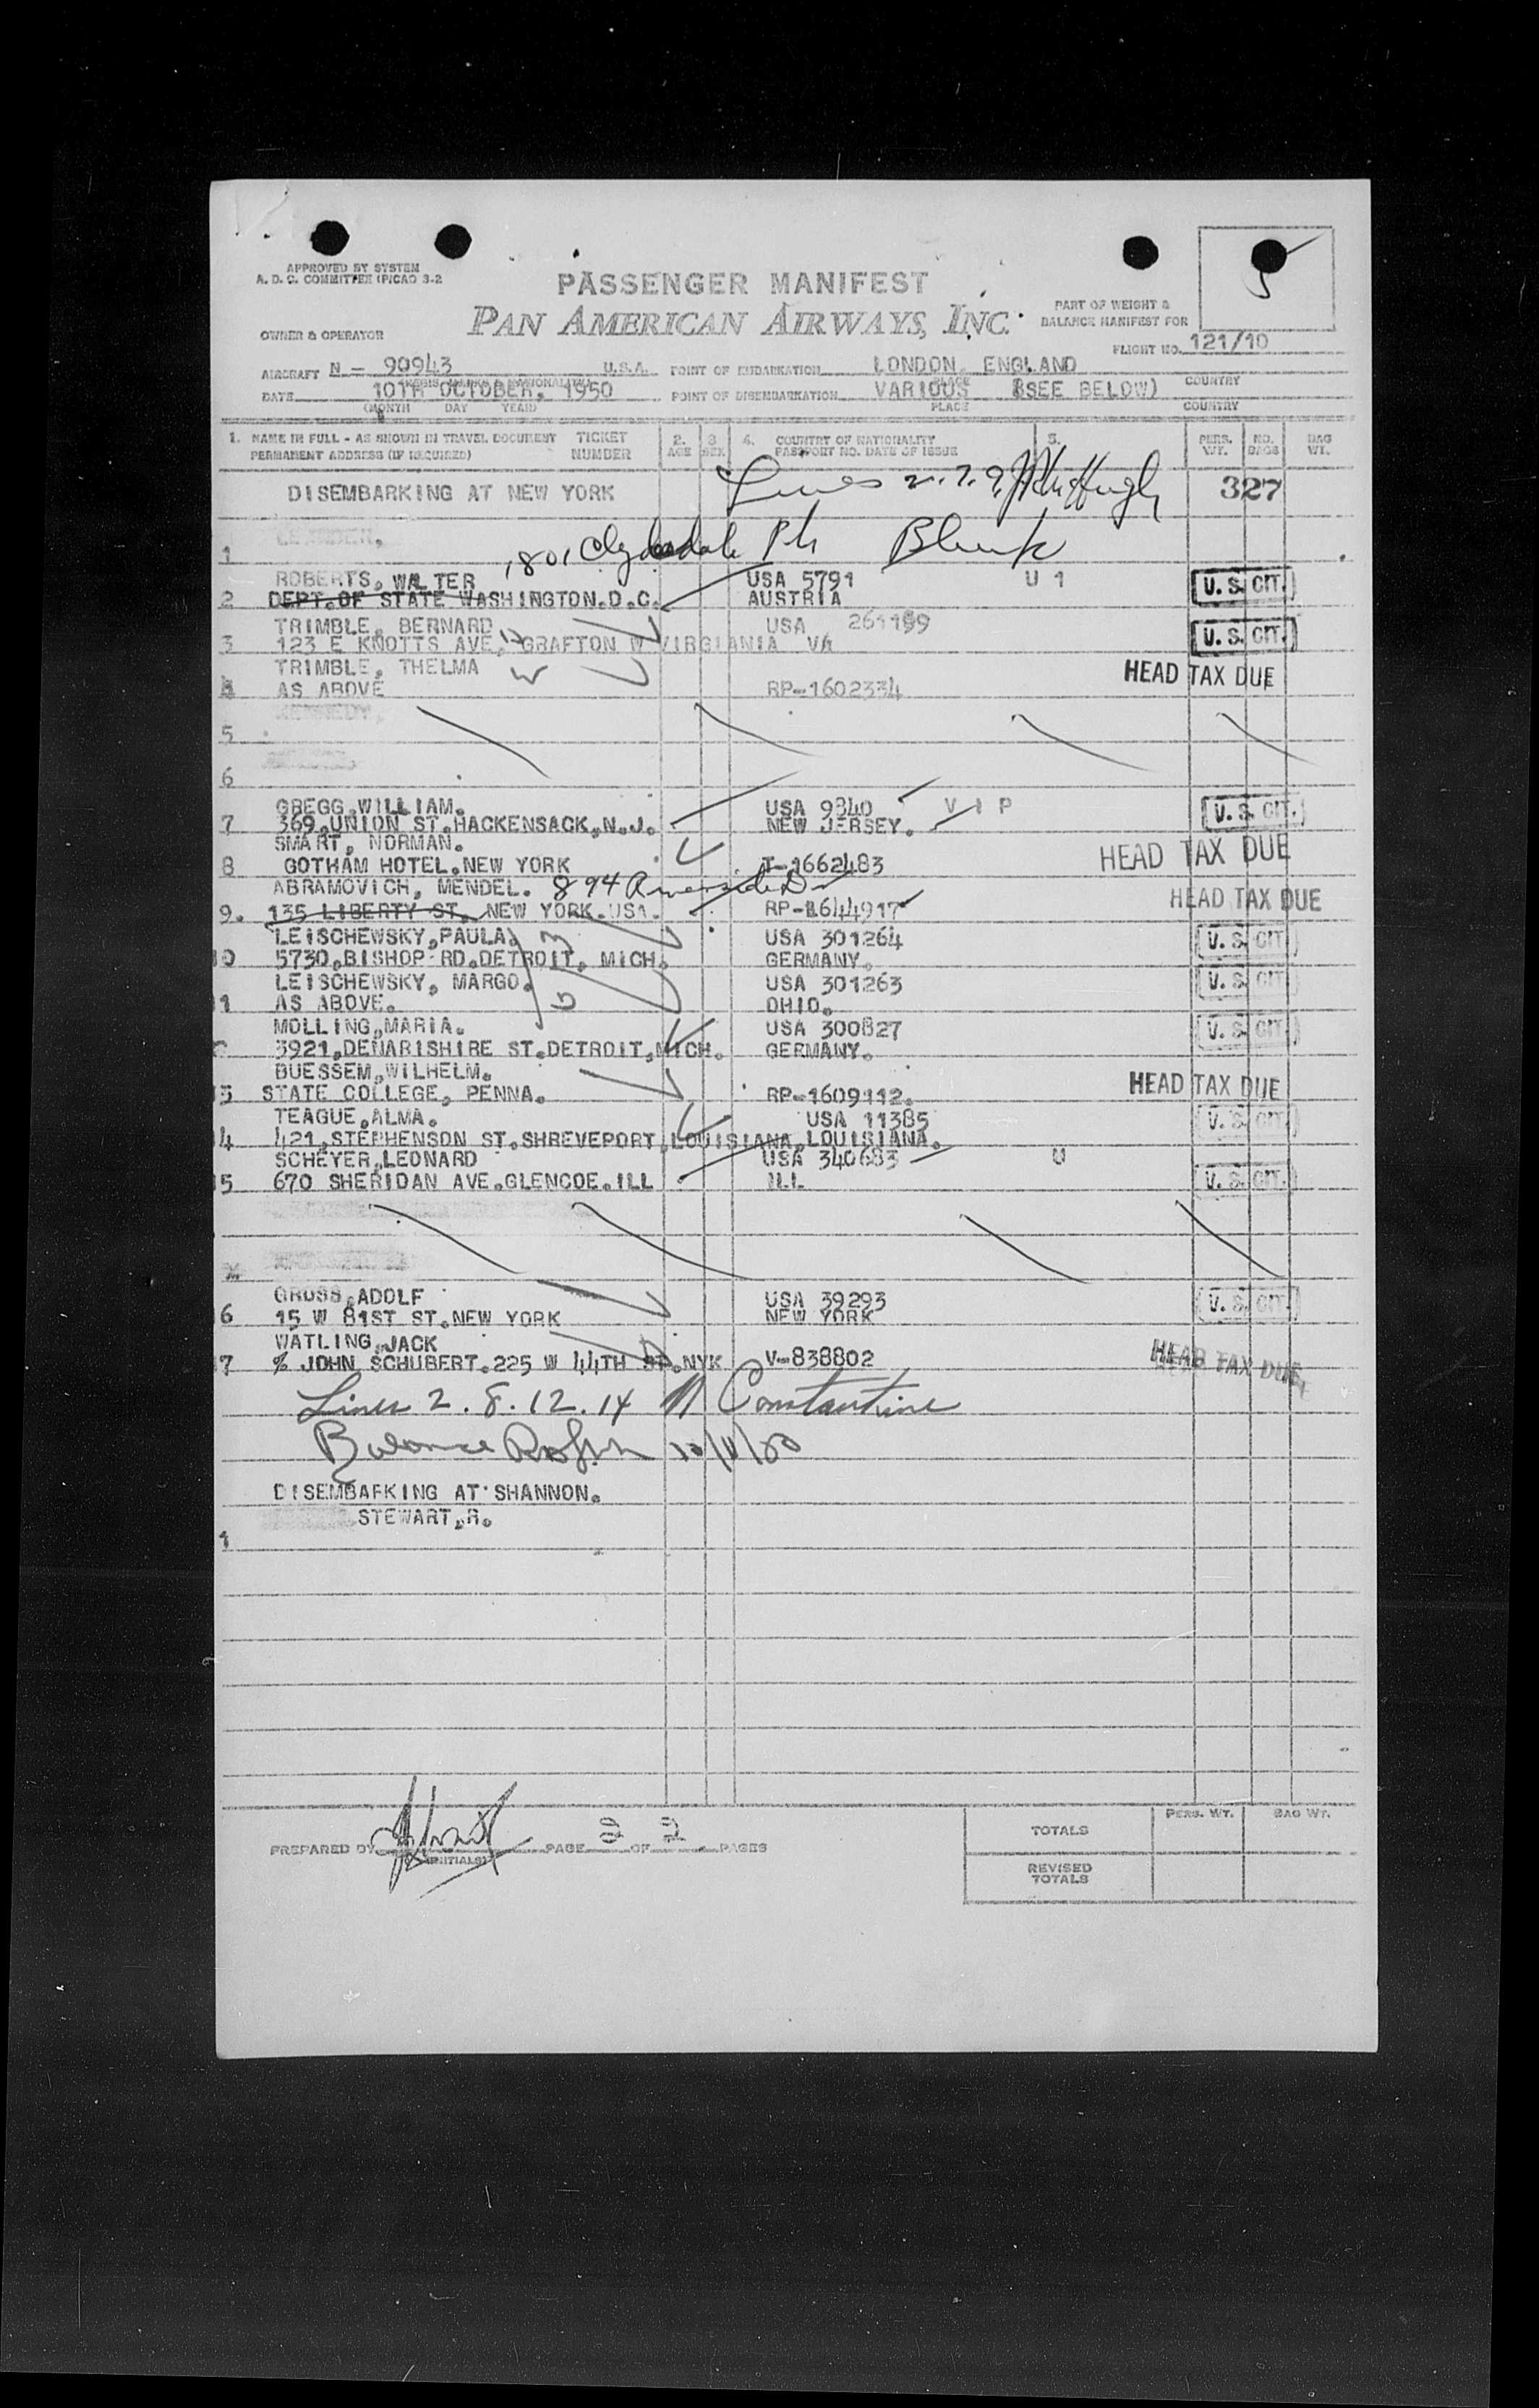 APPROVED BY SYSTEM
A. D. C. COMMITTEE (PICAO 3-2
PASSENGER MANIFEST
PAN AMERICAN AIRWAYS, INC.
PART OF WEIGHT &
BALANCE MANIFEST FOR
OWNER & OPERATOR
FLIGHT NO. 121/10
AIRCRAFT N - 90943 U.S.A. POINT OF EMBARKATION LONDON, ENGLAND
DATE 10TH OCTOBER, 1950 POINT OF DISEMBARKATION VARIOUS (SEE BELOW)
PLACE COUNTRY
(MONTH DAY YEAR) PLACE COUNTRY
1. NAME IN FULL - AS SHOWN IN TRAVEL DOCUMENT TICKET 2. 3 4. COUNTRY OF NATIONALITY 5. PERS. NO. BAG
PERMANENT ADDRESS (IF REQUIRED) NUMBER AGE SEX PASSPORT NO. DATE OF ISSUE WT. BAGS WT.
DISEMBARKING AT NEW YORK Lines 2. 7. 9. 327
1 1801 Clydesdale Pl
ROBERTS, WALTER USA 5791 U 1 U. S. CIT.
2 DEPT.OF STATE WASHINGTON.D.C. AUSTRIA
TRIMBLE, BERNARD USA 261199 U. S. CIT.
3 123 E KNOTTS AVE, GRAFTON W VIRGIANIA VA
TRIMBLE, THELMA HEAD TAX DUE
4 AS ABOVE RP-1602334
5
6
GREGG,WILLIAM. USA 9840 V I P U. S. CIT.
7 369,UNION ST.HACKENSACK,N.J. NEW JERSEY.
SMART, NORMAN. HEAD TAX DUE
8 GOTHAM HOTEL.NEW YORK T-1662483
ABRAMOVICH, MENDEL. 894 Riverside Dr HEAD TAX DUE
9. 135 LIBERTY ST. NEW YORK.USA. RP-1644917
LEISCHEWSKY,PAULA. USA 301264 U. S. CIT.
10 5730,BISHOP RD.DETROIT, MICH. GERMANY.
LEISCHEWSKY, MARGO. USA 301263 U. S. CIT.
11 AS ABOVE. OHIO.
MOLLING,MARIA. USA 300827 U. S. CIT.
3921,DENARISHIRE ST.DETROIT,MICH. GERMANY.
BUESSEM,WILHELM. HEAD TAX DUE
13 STATE COLLEGE, PENNA. RP-1609112.
TEAGUE,ALMA. USA 11385 U. S. CIT.
14 421,STEPHENSON ST.SHREVEPORT,LOUISIANA,LOUISIANA.
SCHEYER,LEONARD USA 340683 U
15 670 SHERIDAN AVE.GLENCOE.ILL ILL U. S. CIT.
GROSS,ADOLF USA 39293 U. S. CIT.
16 15 W 81ST ST.NEW YORK NEW YORK
WATLING,JACK HEAD TAX DUE
17 % JOHN SCHUBERT.225 W 44TH ST.NYK V-838802
Lines 2. 8. 12. 14 N Constantine
Balance
DISEMBARKING AT SHANNON.
STEWART,R.
1
PREPARED BY (INITIALS) PAGE 2 OF 2 PAGES
PERS. WT. BAG WT.
TOTALS
REVISED
TOTALS